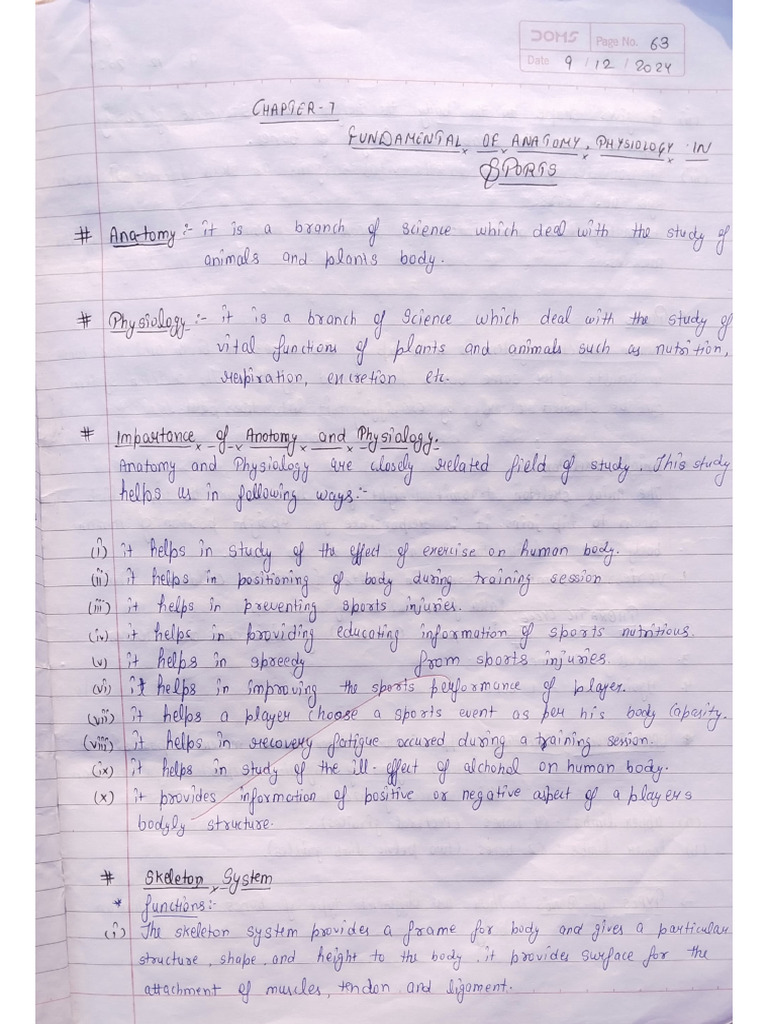 DOMS Page No. 63
Date 9 / 12 / 2024
CHAPTER-7
FUNDAMENTAL OF ANATOMY, PHYSIOLOGY IN
SPORTS
# Anatomy :- it is a branch of science which deal with the study of
animals and plants body.
# Physiology :- it is a branch of science which deal with the study of
vital functions of plants and animals such as nutrition,
respiration, excretion etc.
# Importance of Anotomy and Physiology.
Anatomy and Physiology are closely related field of study. This study
helps us in following ways:-
(i) it helps in study of the effect of exercise on human body.
(ii) it helps in positioning of body during training session
(iii) it helps in preventing sports injuries.
(iv) it helps in providing educating information of sports nutritious.
(v) it helps in spreedy from sports injuries.
(vi) it helps in improving the sports performance of player.
(vii) it helps a player choose a sports event as per his body capasity.
(viii) it helps in recovery fatigue occured during a training session.
(ix) it helps in study of the ill-effect of alchohal on human body.
(x) it provides information of positive or negative aspect of a players
bodyly structure.
# Skeleton System
* functions:-
(i) The skeleton system provides a frame for body and gives a particular
structure, shape, and height to the body. it provides surface for the
attachment of muscles, tendon and ligament.